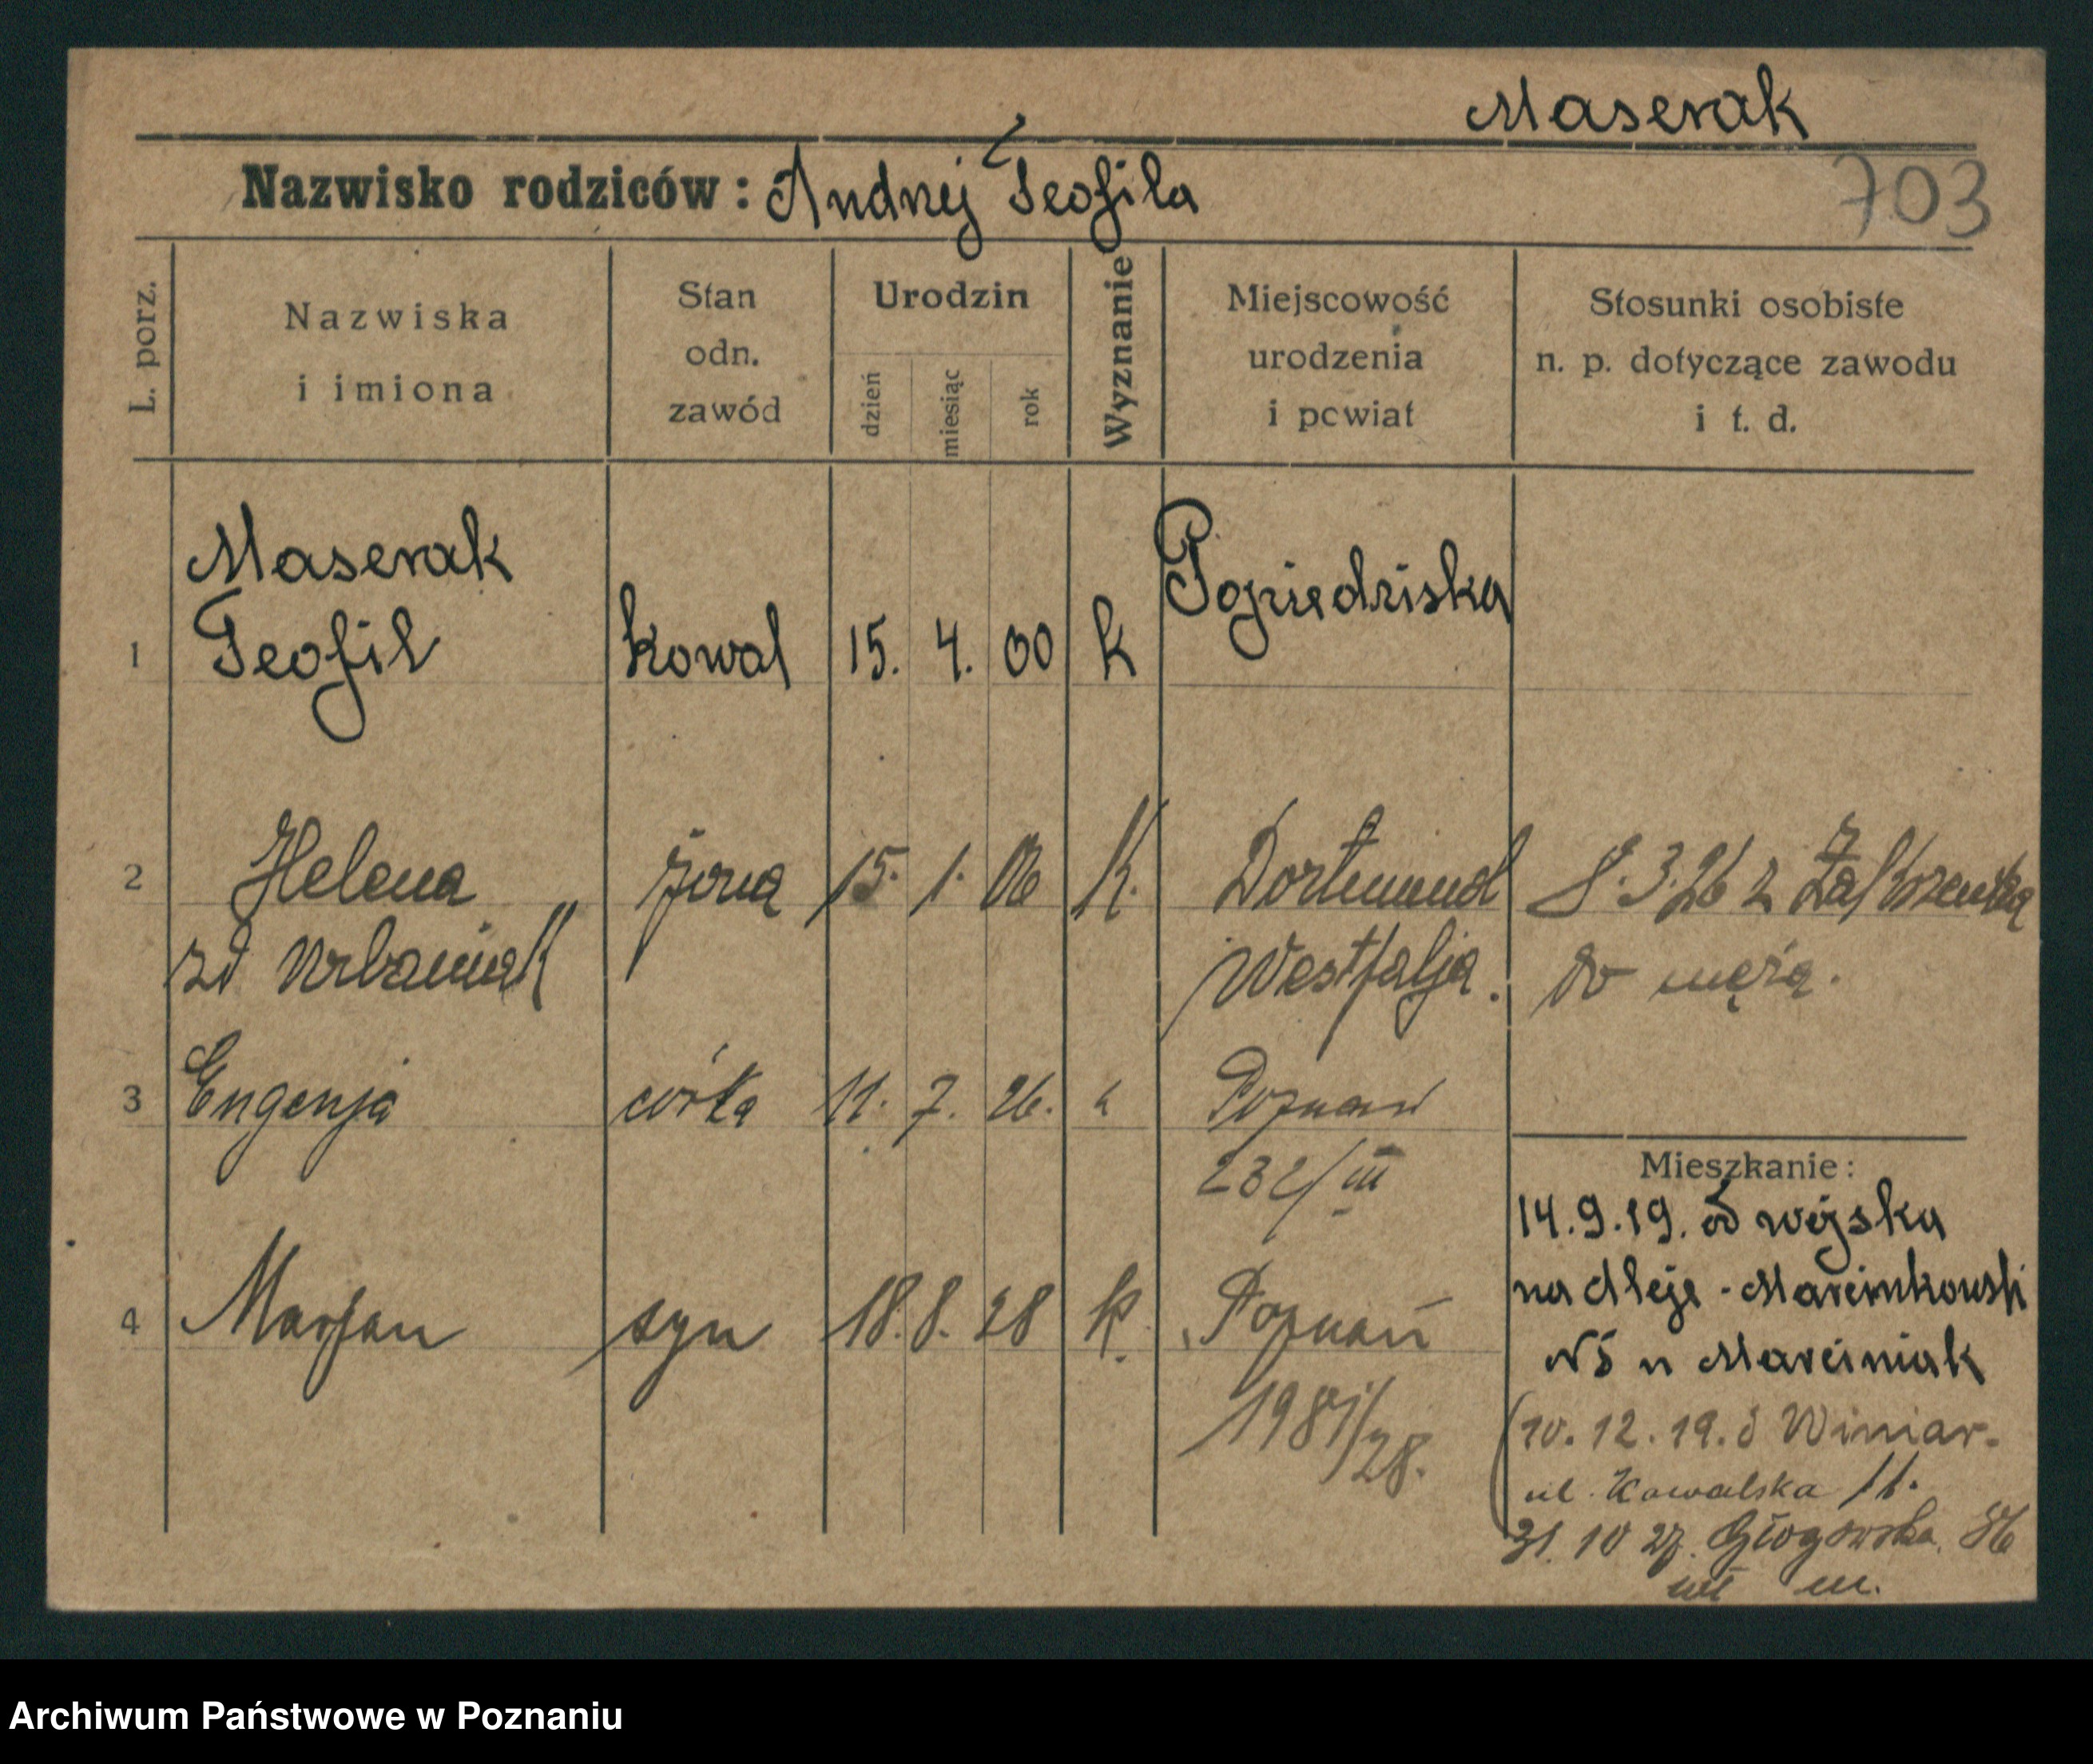 Maserak
Nazwisko rodziców: Andrzej Teofila
703
L. porz.
Nazwiska
i imiona
Stan
odn.
zawód
Urodzin
dzień
miesiąc
rok
Wyznanie
Miejscowość
urodzenia
i powiat
Stosunki osobiste
n. p. dotyczące zawodu
i t. d.
Maserak
1 Teofil kowal 15. 4. 00 k Pobiedziska
2 Helena żona 15. 1. 06 K. Dortmund 8.3.26 z
zd Urbaniak Westfalja. do męża.
3 Eugenja córka 11. 7. 26. Poznań
232/III
Mieszkanie:
14.9.19. od wojska
na Aleje - Marcinkowski
N5 u Marciniak
4 Marjan syn 18. 8. 28 k. Poznań
1981/28.
(10. 12. 19. Winiar-
ul. Kowalska 11.
31. 10 27. Głogowska. 86
m.
Archiwum Państwowe w Poznaniu